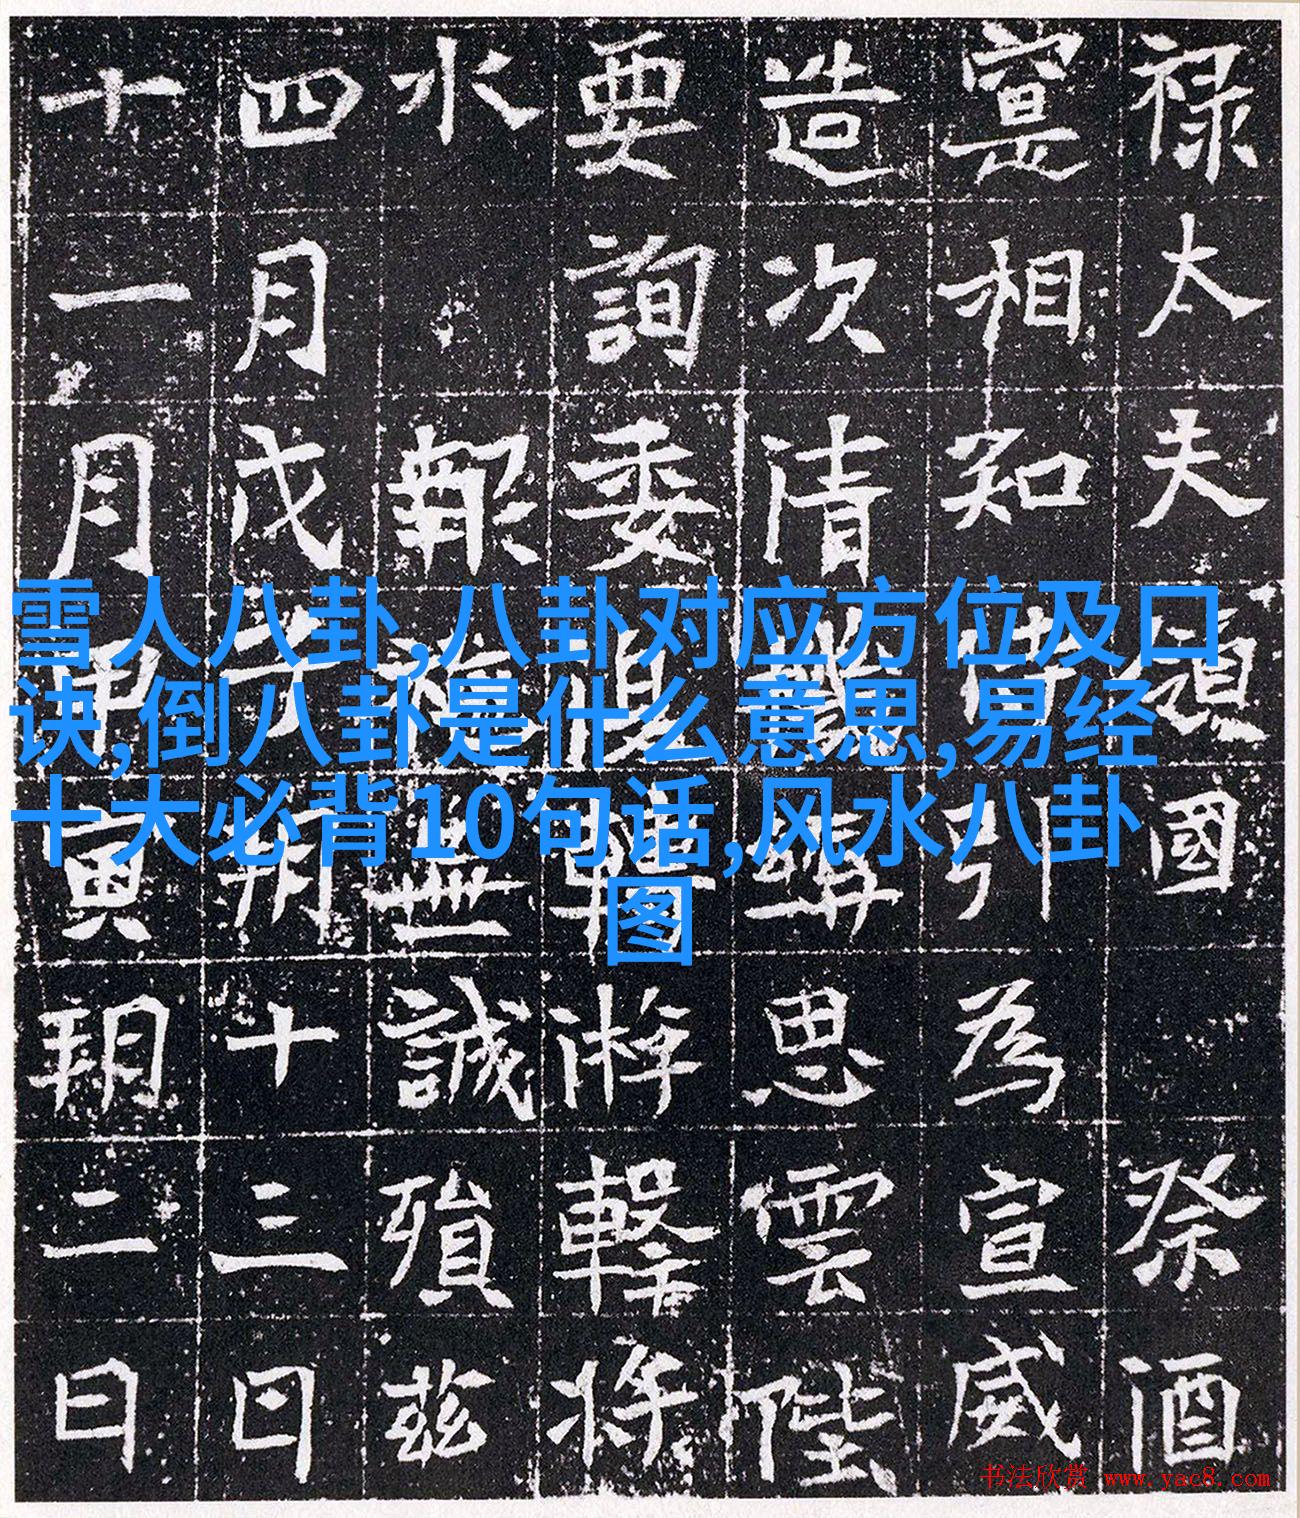 雪人八卦,八卦对应方位及口
诀,倒八卦是什么意思,易经
十大必背10句话,风水八卦
图
禄太夫國祭酒
寔相知引為宣威
造次清講思雲陛
要詢委游擊將
水報無誠殞茲
四月戊子朔十三日
十一月甲寅朔二日
书法欣赏 www.yac8.com